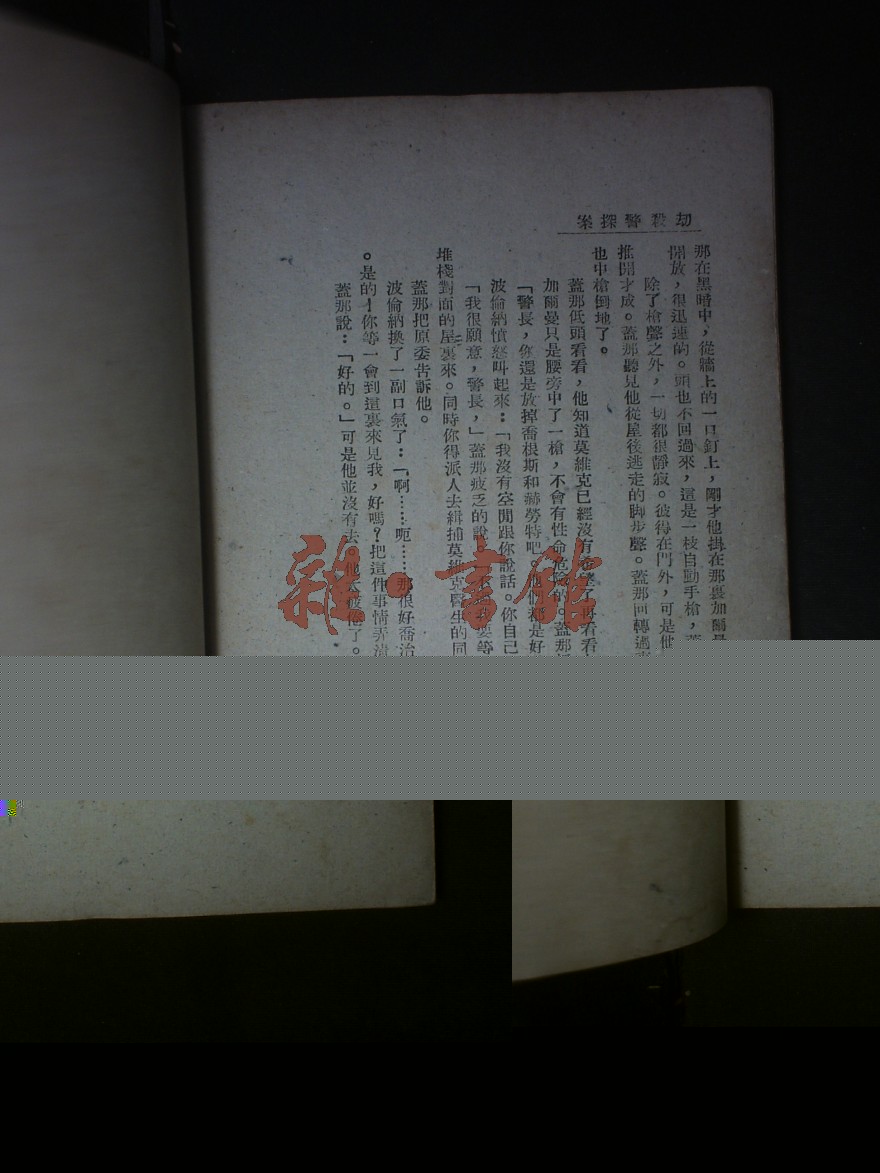 劫殺警探案
那在黑暗中，從牆上的一口釘上，剛才他掛在那裏加爾
開放，很迅速的。頭也不回過來，這是一枝自動手槍，
除了槍聲之外，一切都很靜寂。彼得在門外，可是他
推開才成。蓋那聽見他從屋後逃走的脚步聲。蓋那回轉過
也中槍倒地了。
蓋那低頭看看，他知道莫維克已經沒有了再看看
加爾曼只是腰旁中了一槍，不會有性命危險的。蓋那
「警長，你還是放掉喬根斯和赫勞特吧他們都是好
波倫納憤怒叫起來：「我沒有空閒跟你說話。你自己
「我很願意，警長，」蓋那疲乏的說，不我要等
堆棧對面的屋裏來。同時你得派人去緝捕莫維克醫生的同
蓋那把原委告訴他。
波倫納換了一副口氣了：「啊……呃……那很好喬治
。是的才你等一會到這裏來見我，好嗎？把這件事情弄清
蓋那說：「好的。」可是他並沒有去他太疲倦了。
雜·書館